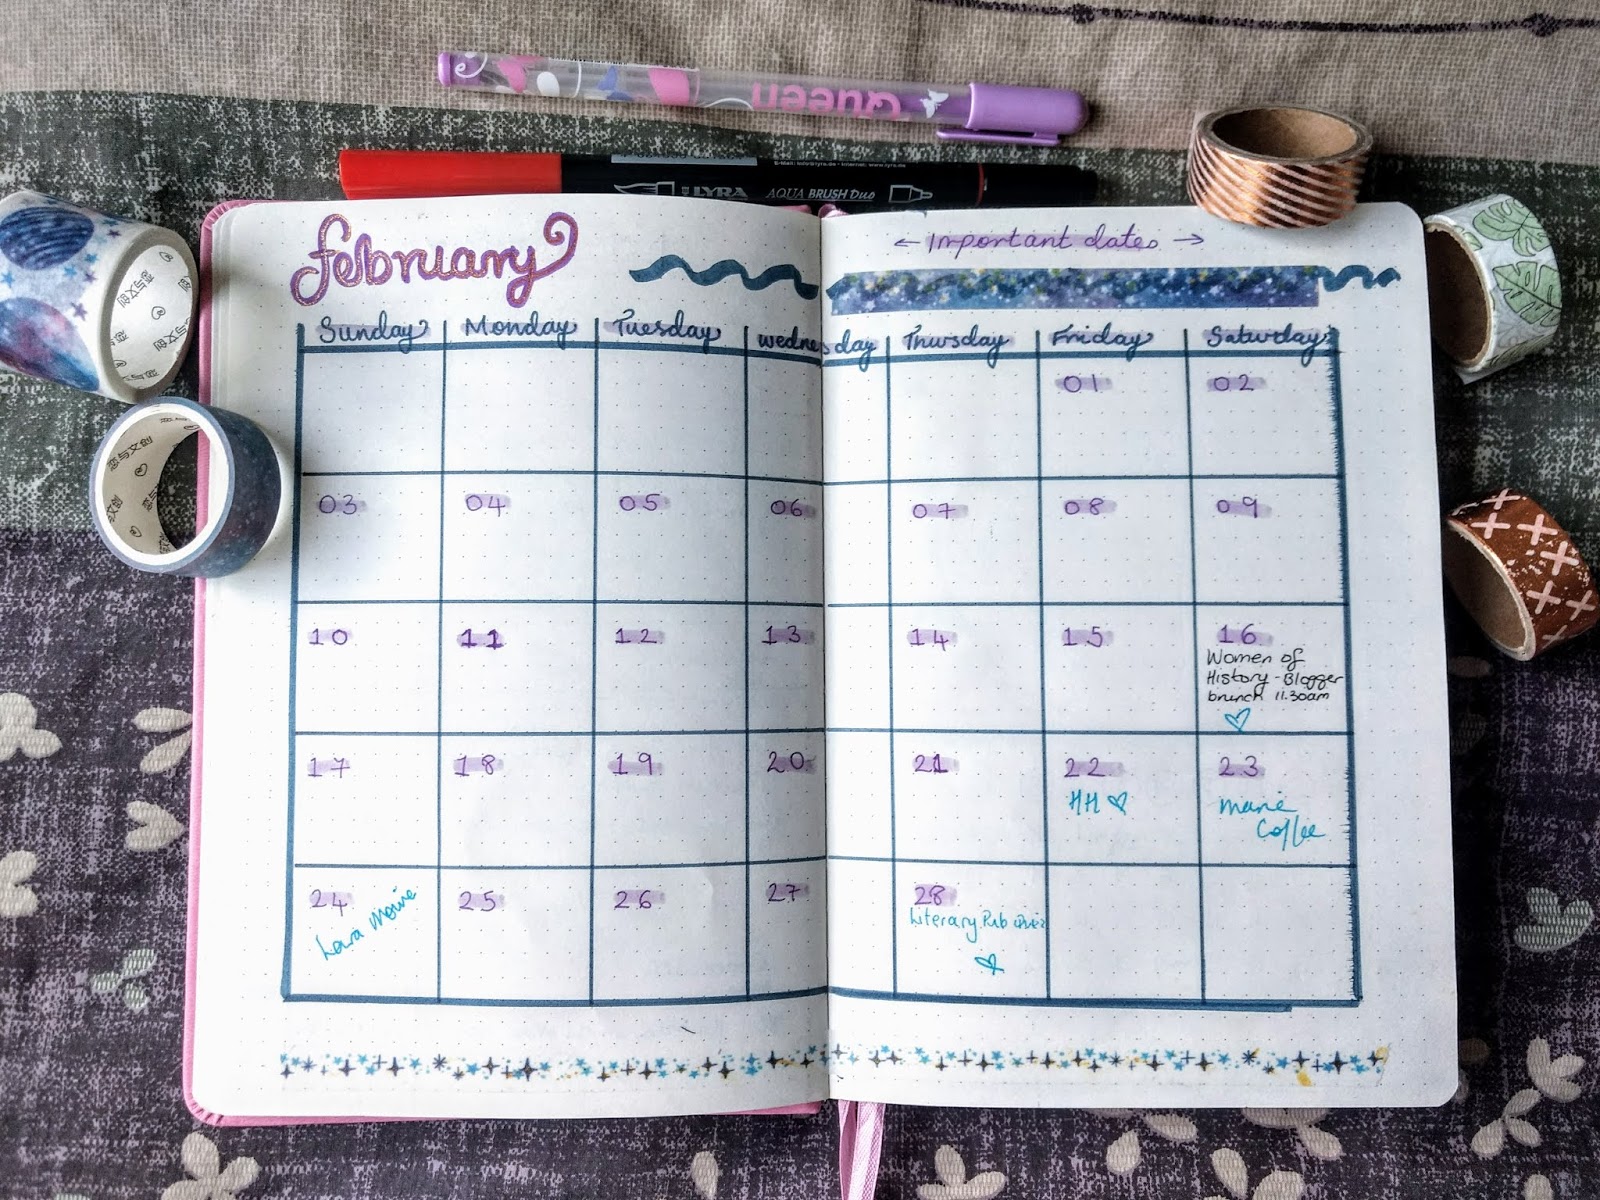 Queen
LYRA AQUA BRUSH Duo
february
← Important dates →
Sunday Monday Tuesday wednesday Thursday Friday Saturday
01 02
03 04 05 06 07 08 09
10 11 12 13 14 15 16
Women of
History - Blogger
brunch 11.30am
17 18 19 20 21 22 23
HH
Marie
Coffee
24 25 26 27 28
Lara Movie
Literary Pub